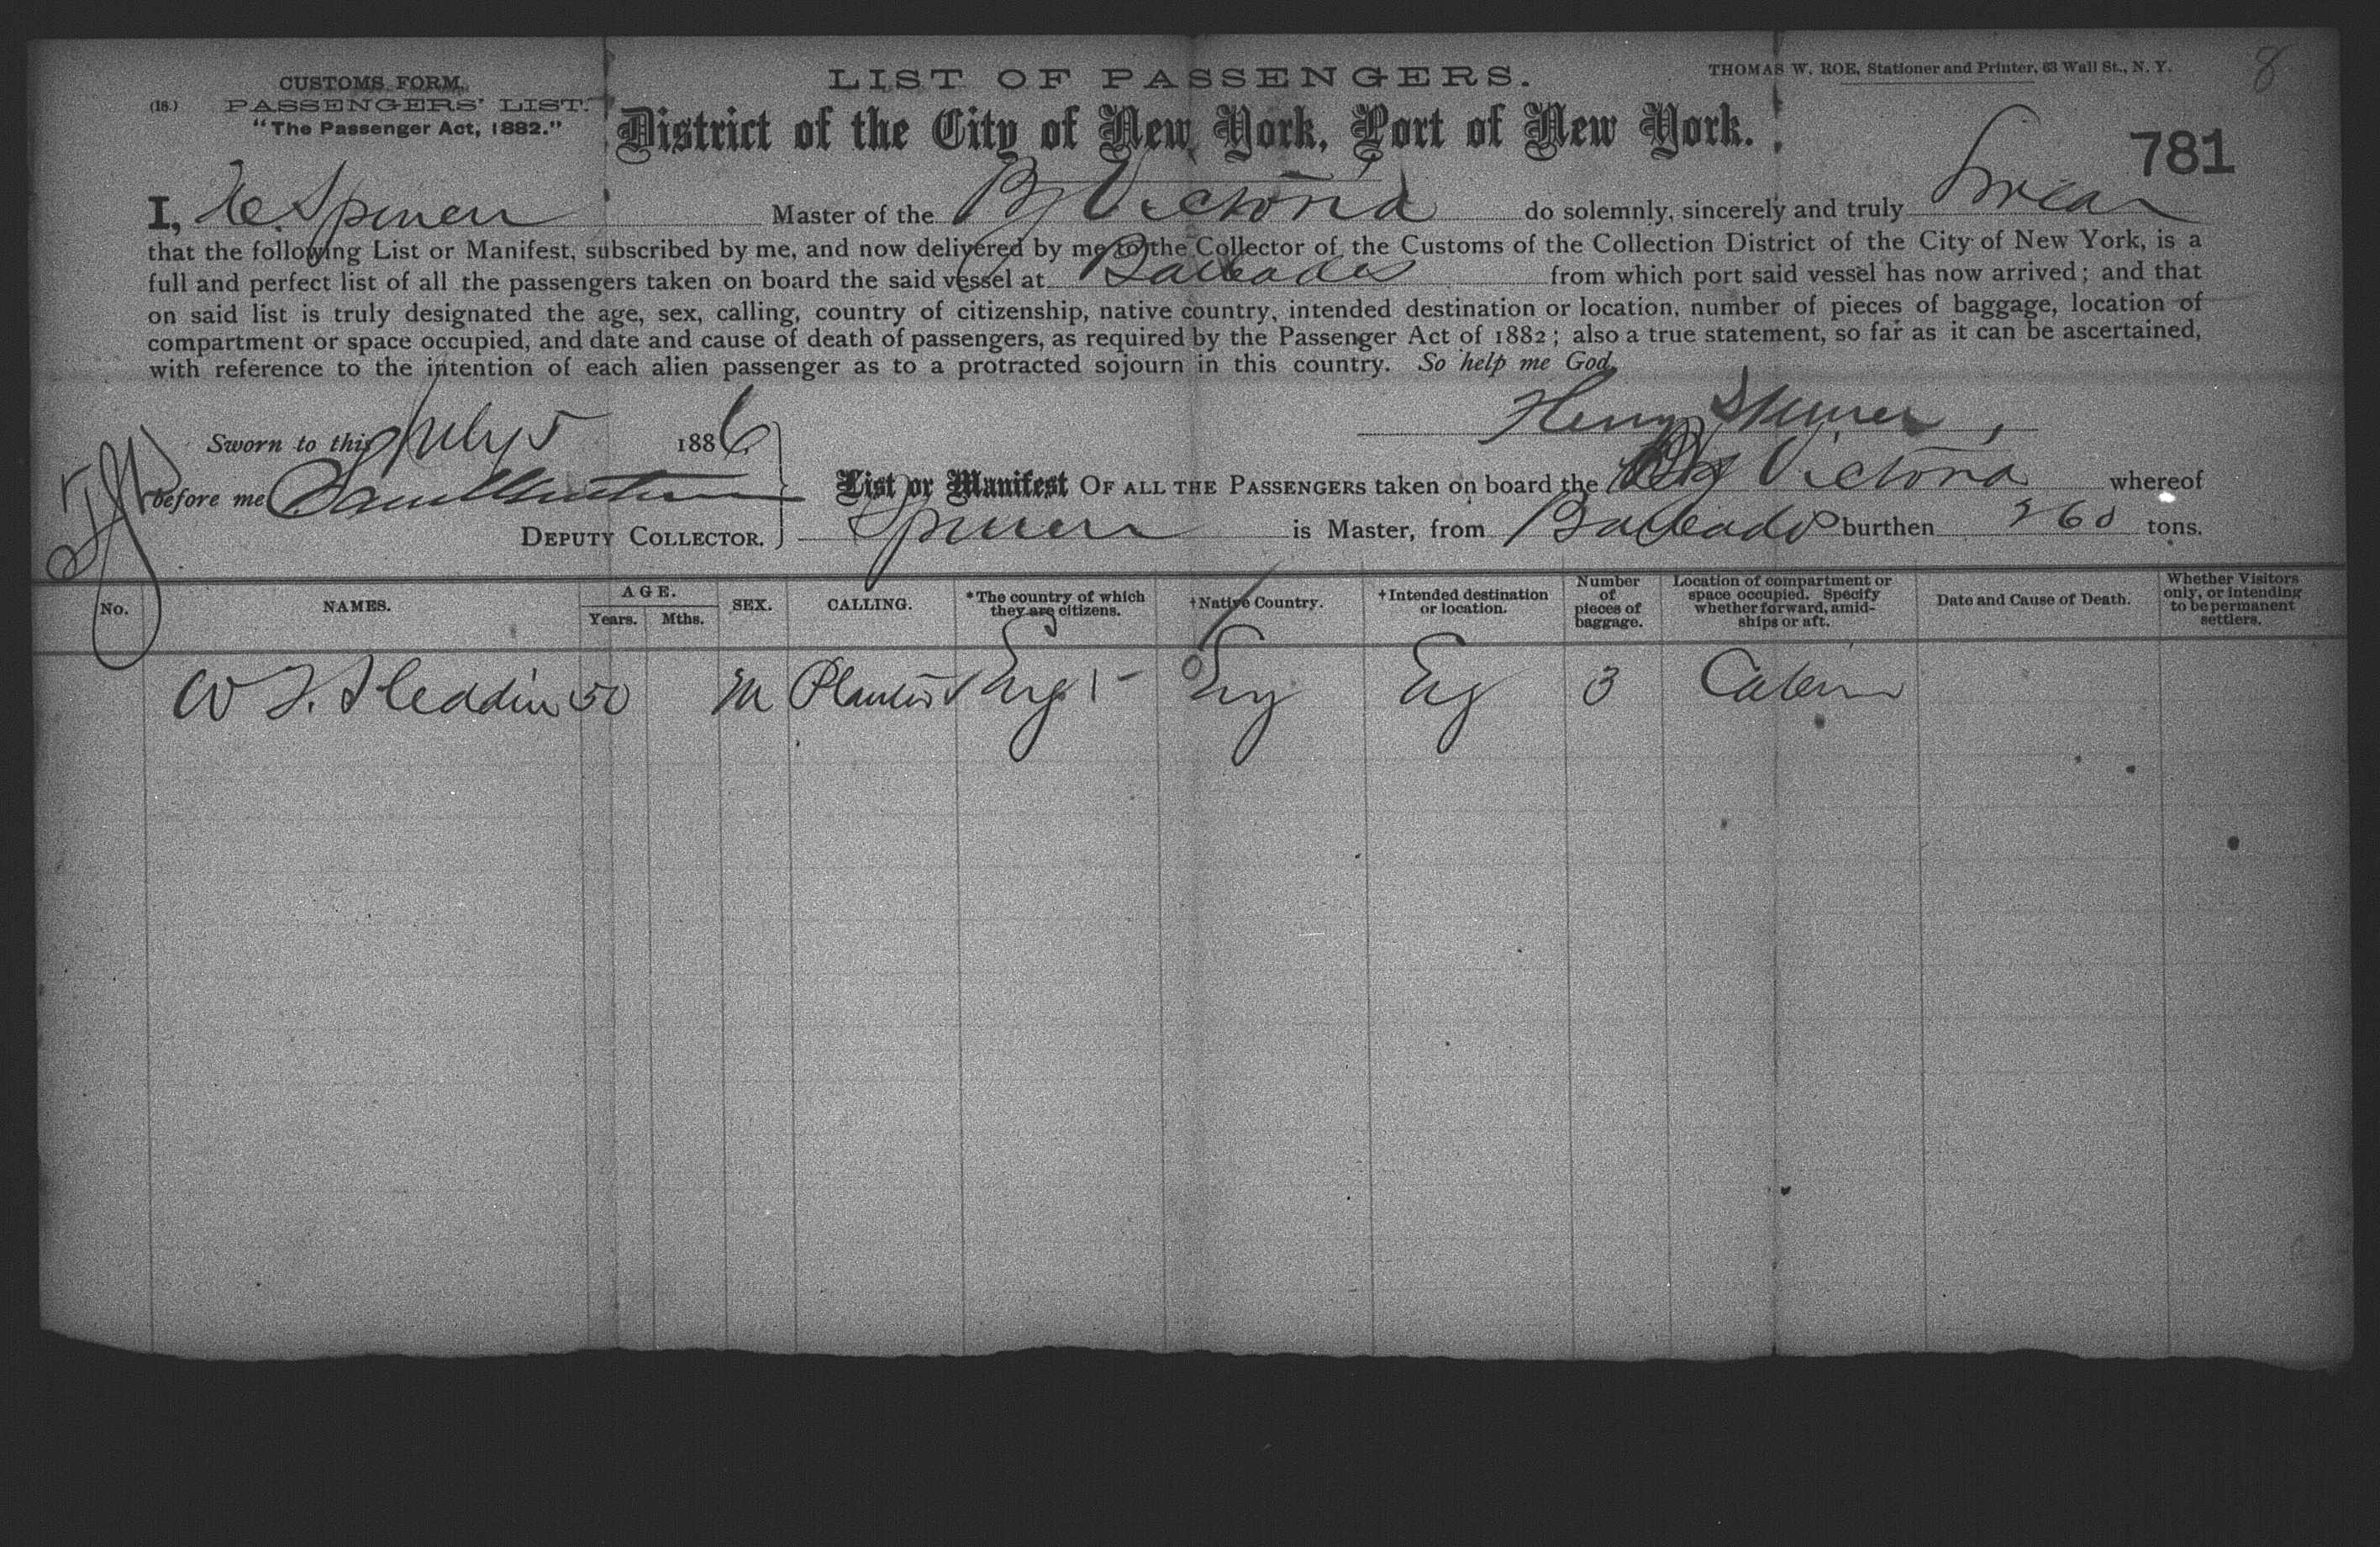 CUSTOMS FORM,
(18.) PASSENGERS' LIST.
"The Passenger Act, 1882."
LIST OF PASSENGERS.
THOMAS W. ROE, Stationer and Printer, 63 Wall St., N. Y.
8
District of the City of New York, Port of New York.
781
I, H. Master of the Bg Victoria do solemnly, sincerely and truly Swear
that the following List or Manifest, subscribed by me, and now delivered by me to the Collector of the Customs of the Collection District of the City of New York, is a
full and perfect list of all the passengers taken on board the said vessel at Barbados from which port said vessel has now arrived; and that
on said list is truly designated the age, sex, calling, country of citizenship, native country, intended destination or location, number of pieces of baggage, location of
compartment or space occupied, and date and cause of death of passengers, as required by the Passenger Act of 1882; also a true statement, so far as it can be ascertained,
with reference to the intention of each alien passenger as to a protracted sojourn in this country. So help me God.
Henry
Sworn to this July 5 1886
before me
DEPUTY COLLECTOR.
List or Manifest OF ALL THE PASSENGERS taken on board the Victoria whereof
is Master, from Barbados burthen 260 tons.
No. NAMES. AGE. Years. Mths. SEX. CALLING. *The country of which they are citizens. †Native Country. †Intended destination or location. Number of pieces of baggage. Location of compartment or space occupied. Specify whether forward, amidships or aft. Date and Cause of Death. Whether Visitors only, or intending to be permanent settlers.
W 50 M Planter Eng Eng Eng 3 Cabin